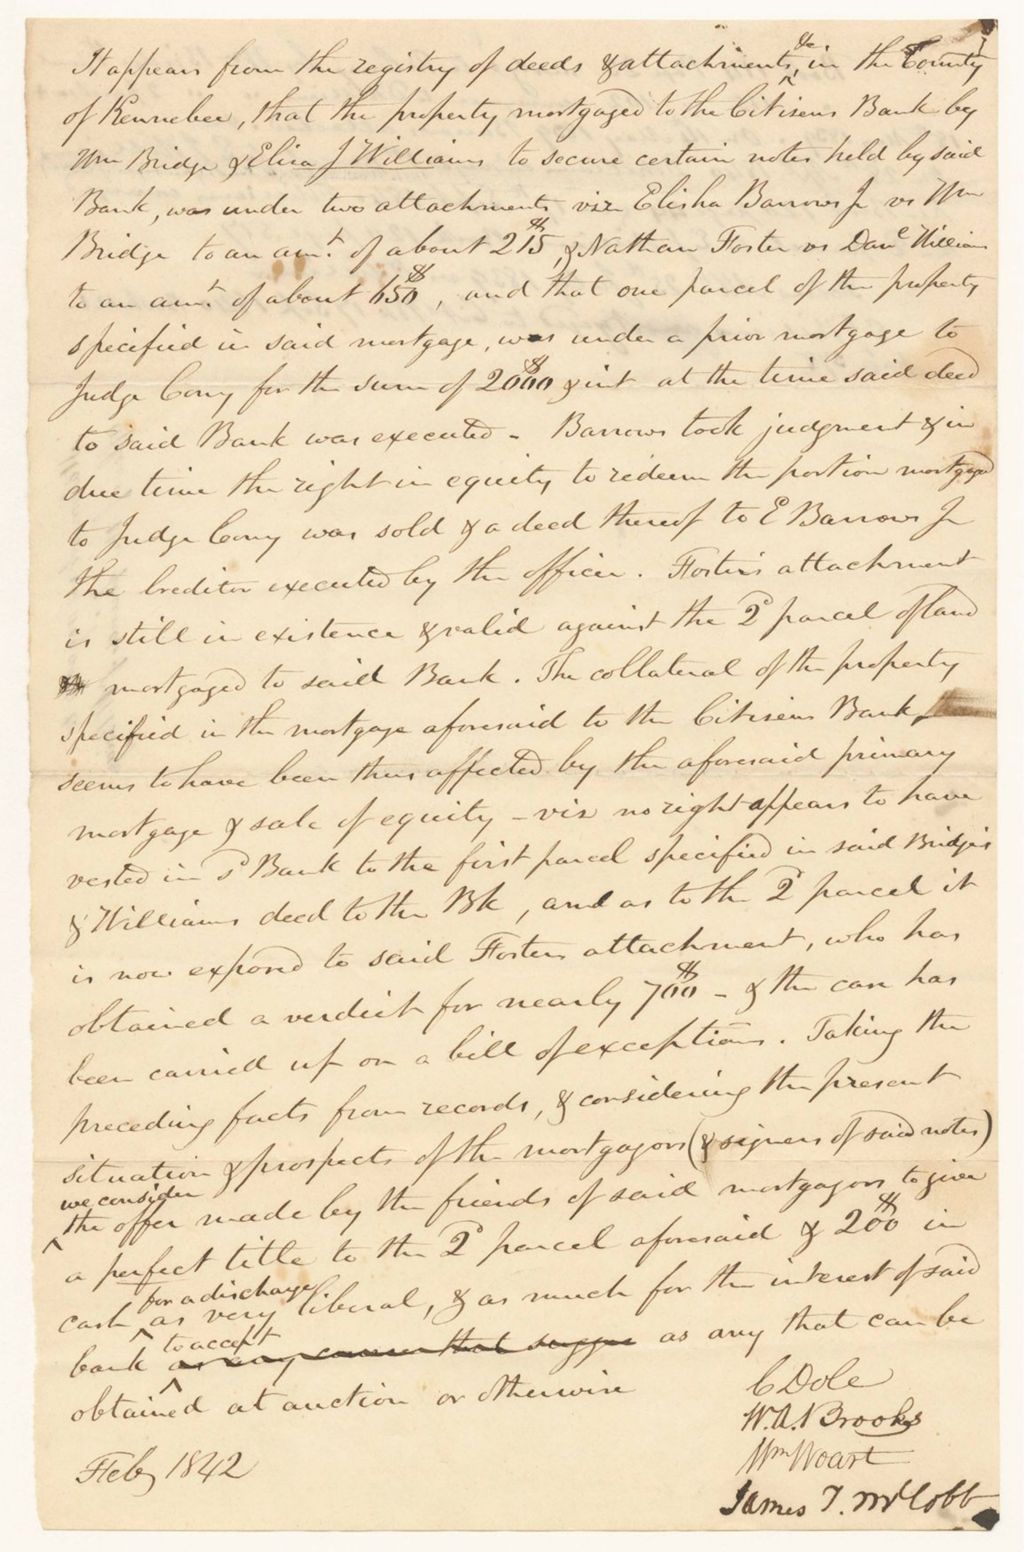 It appears from the registry of deeds & attachments, &c in the County
of Kennebec, that the property mortgaged to the Citizens Bank by
Wm Bridge & Eliza J Williams to secure certain notes held by said
Bank, was under two attachments viz Elisha Barrows Jr vs Wm
Bridge to an amt. of about 215$, & Nathan Foster vs Danl Williams
to an amt of about 650$, and that one parcel of the property
specified in said mortgage, was under a prior mortgage to
Judge Cony for the sum of 2000$ & int at the time said deed
to said Bank was executed - Barrows took judgment & in
due time the right in equity to redeem the portion mortgaged
to Judge Cony was sold & a deed thereof to E Barrows Jr
the Creditor executed by the officer. Foster's attachment
is still in existence & valid against the 2d parcel of land
mortgaged to said Bank. The collateral of the property
specified in the mortgage aforesaid to the Citizens Bank
seems to have been thus affected by the aforesaid primary
mortgage & sale of equity - viz no right appears to have
vested in sd Bank to the first parcel specified in said Bridge's
& Williams deed to the Bk, and as to the 2d parcel it
is now exposed to said Fosters attachment, who has
obtained a verdict for nearly 700$ - & the case has
been carried up on a bill of exceptions. Taking the
preceding facts from records, & considering the present
situation & prospects of the mortgagors (& signers of said notes)
we consider
the offer made by the friends of said mortgagors to give
a perfect title to the 2d parcel aforesaid & 200$ in
for a discharge
cash as very liberal, & as much for the interest of said
to accept
bank as any course that sugge as any that can be
obtained at auction or otherwise
C Dole
W. A. Brooks
Wm Woart
James T. McCobb
Feby 1842